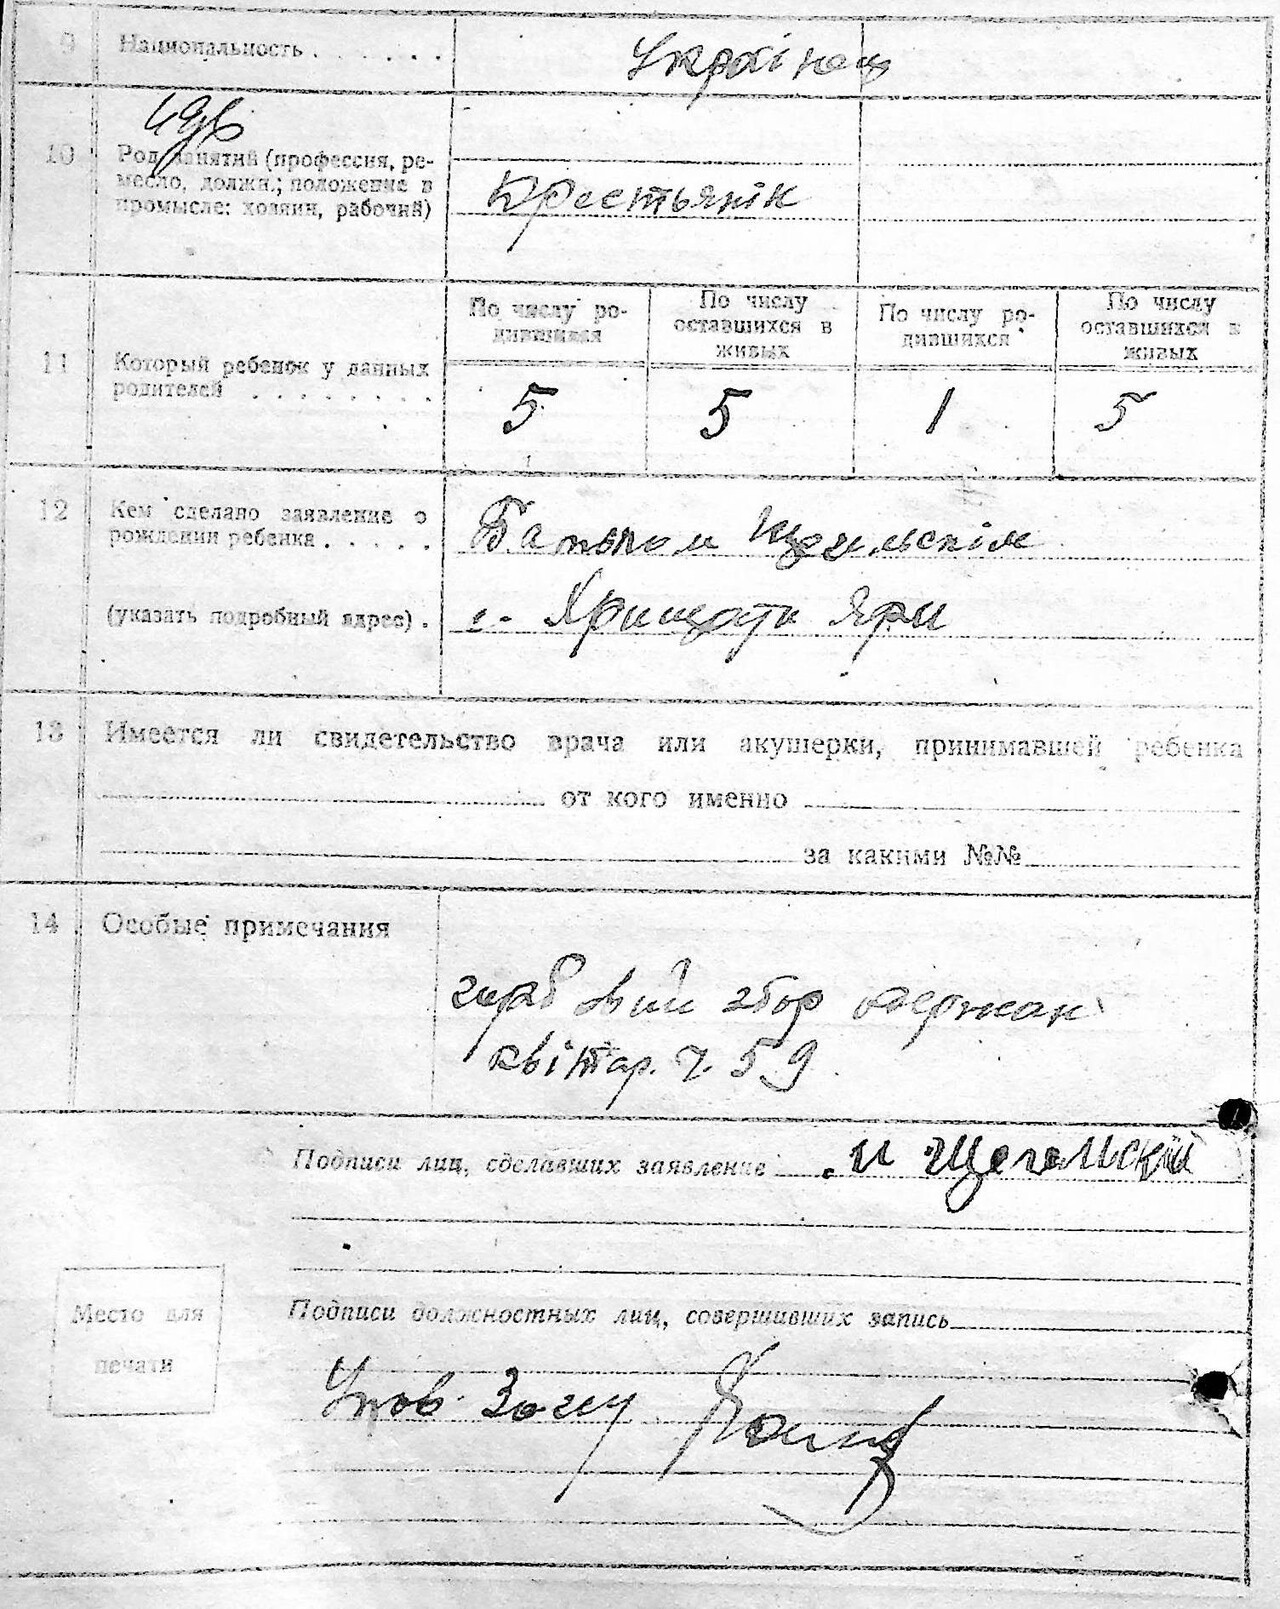 9 Национальность . . . . . . Українец
10 Род занятий (профессия, ре-
месло, должн.; положение в
промысле: хозяин, рабочий)
Крестьянік
11 Который ребенок у данных
родителей . . . . . . . .
По числу ро-
дившихся
По числу
оставшихся в
живых
По числу ро-
дившихся
По числу
оставшихся в
живых
5 5 1 5
12 Кем сделано заявление о
рождении ребенка . . . . .
Батьком Щегильскім
(указать подробный адрес) . с. Хрищати Яри
13 Имеется ли свидетельство врача или акушерки, принимавшей ребенка
от кого именно
за какими №№
14 Особые примечания
гербовий збор одержан
квітар. ч. 59
Подписи лиц, сделавших заявление И Щегельский
Место для
печати
Подписи должностных лиц, совершивших запись
Упов. Загсу